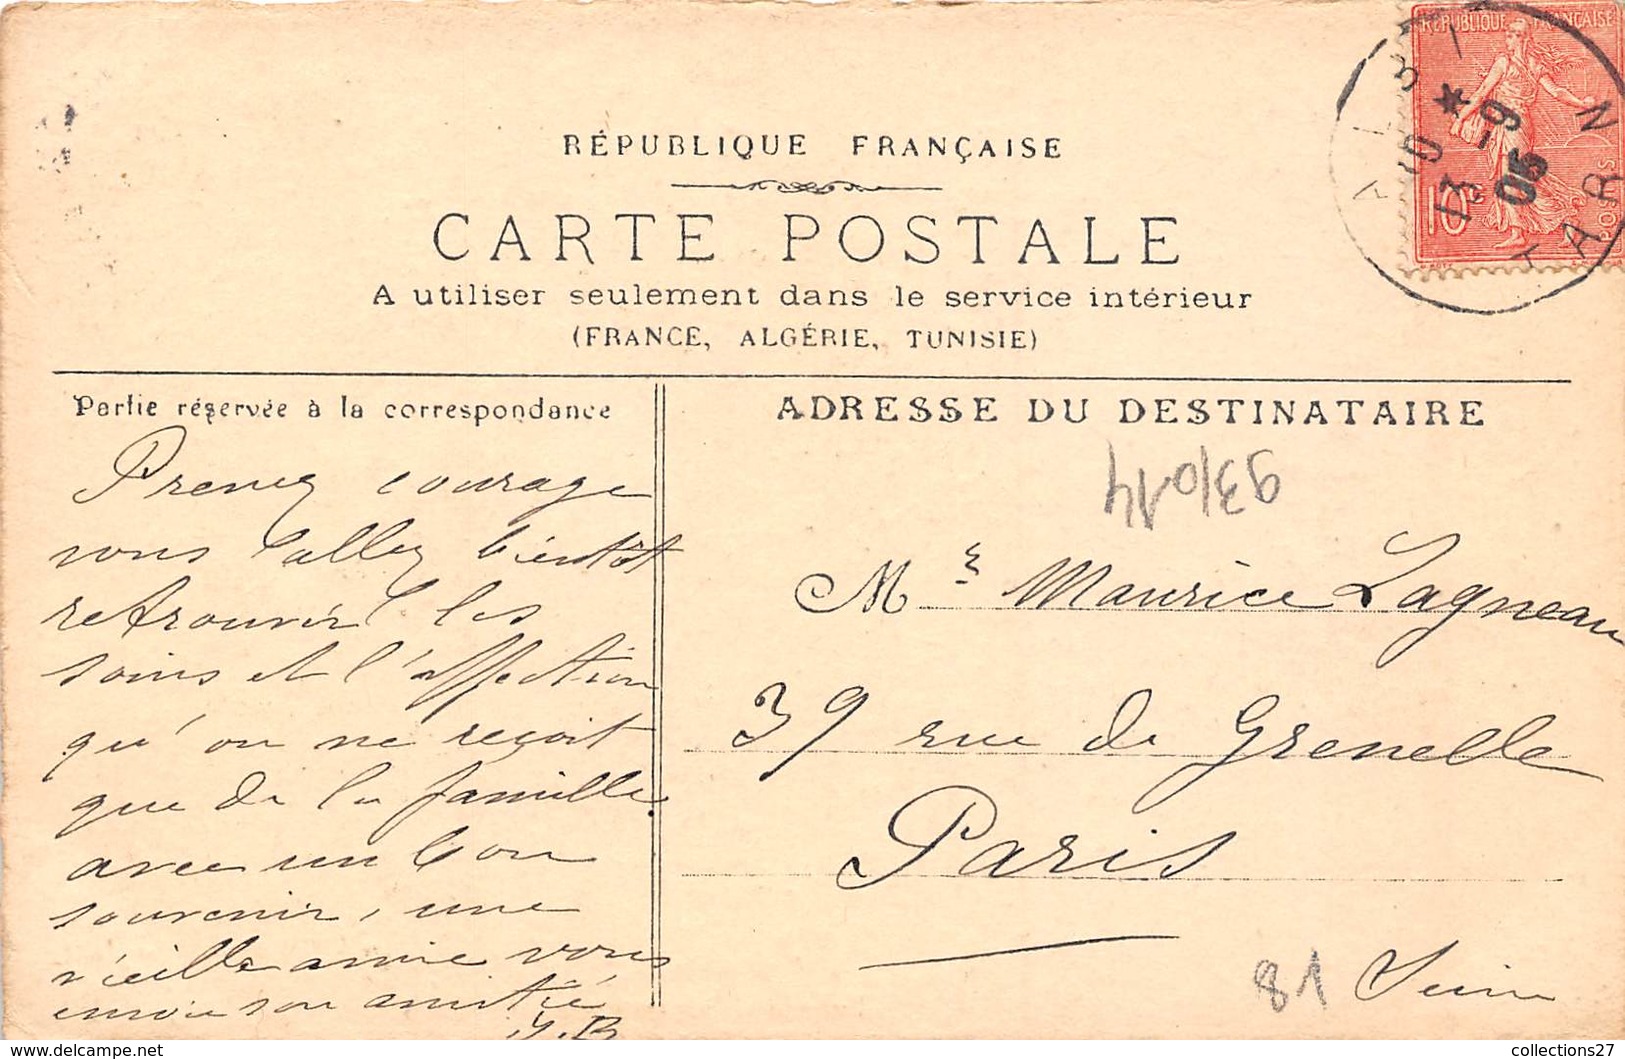 RÉPUBLIQUE FRANÇAISE
CARTE POSTALE
A utiliser seulement dans le service intérieur
(FRANCE, ALGÉRIE, TUNISIE)
RÉPUBLIQUE FRANÇAISE
10c
POSTES
ALBI
TARN
13 -9
06
Partie réservée à la correspondance
Prenez courage
vous l'allez bientôt
retrouver les
soins et l'affection
qu'on ne reçoit
que de la famille.
avec un bon
souvenir, une
vieille amie vous
envoie son amitié
J.B
ADRESSE DU DESTINATAIRE
93/014
Mr Maurice Lagneau
39 rue de Grenelle
Paris
81 Seine
collections27